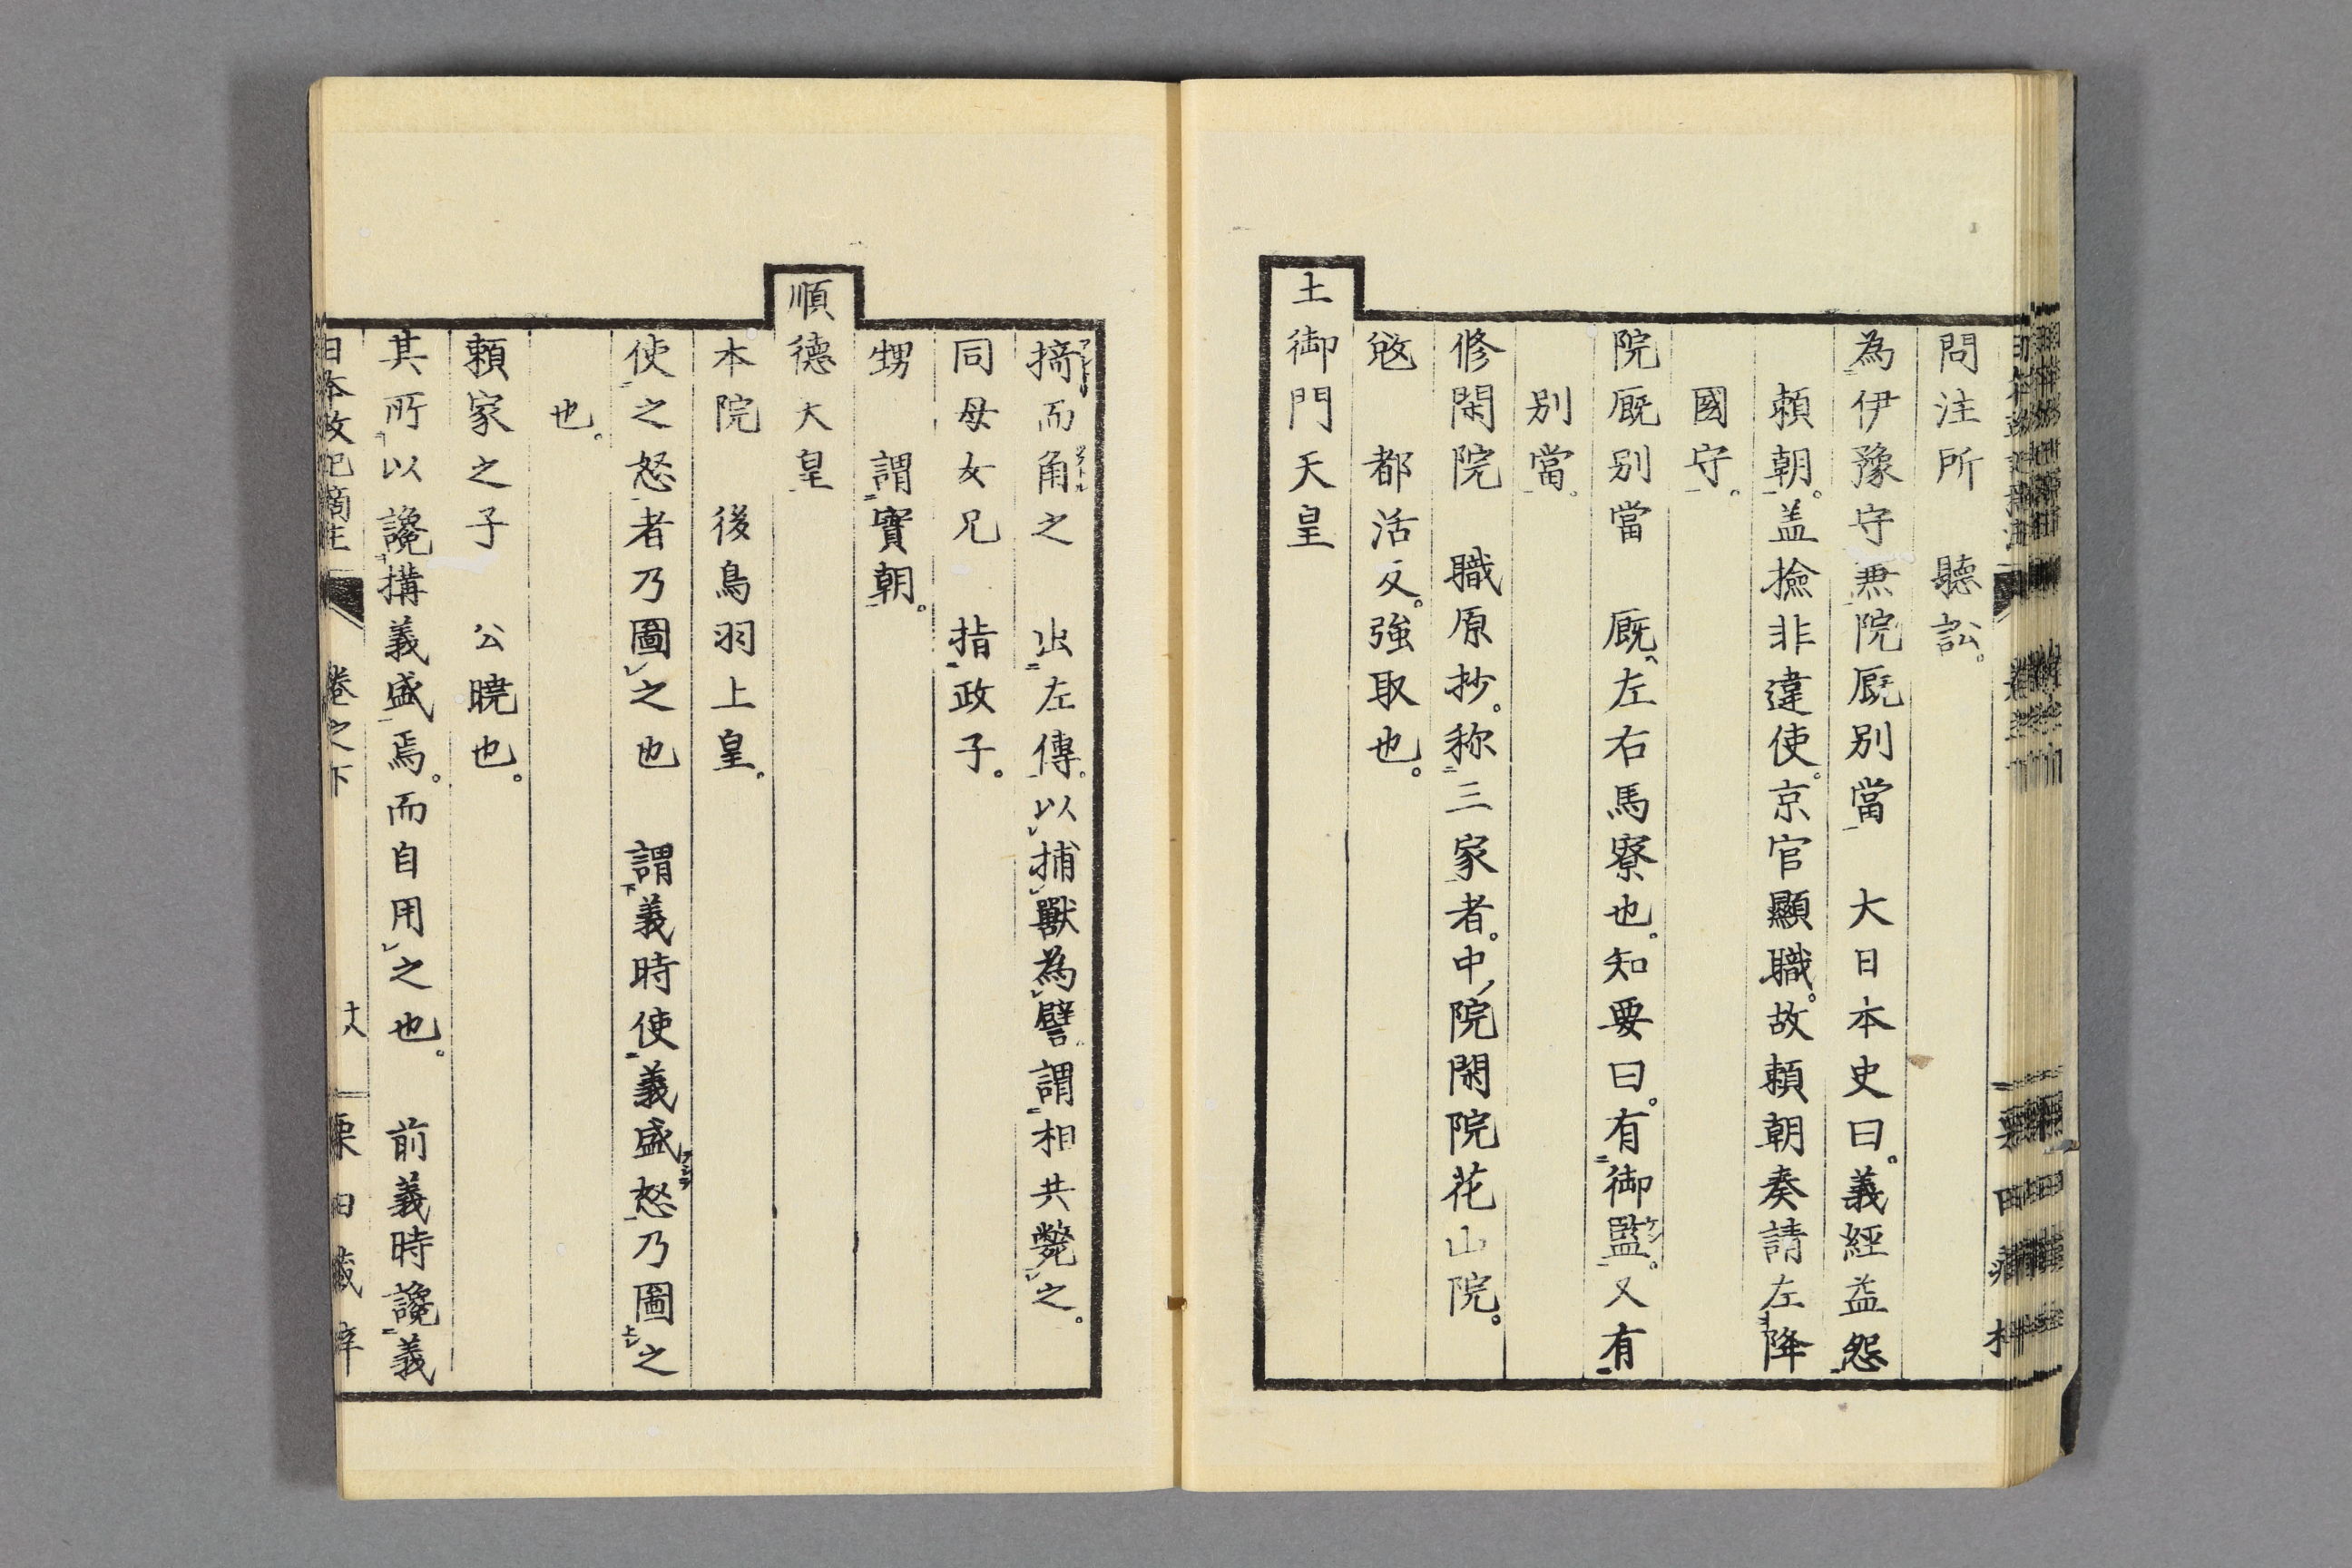 問注所　聽訟。
為伊豫守兼院厩別當　大日本史曰。義經益怨
頼朝。盖撿非違使。京官顯職。故頼朝奏請左降
國守。
院厩別當　厩左右馬寮也。知要曰。有御監。又有
別當。
修閑院　職原抄。称三家者。中院閑院花山院。
敓　都活反。強取也。
土御門天皇
掎而角之　出左傳。以捕獸為譬。謂相共斃之。
同母女兄　指政子。
甥　謂實朝。
順德天皇
本院　後鳥羽上皇。
使之怒者乃圖之也　謂義時使義盛怒乃圖之
也。
頼家之子　公曉也。
其所以讒搆義盛焉。而自用之也。　前義時讒義
日本政記摘註　卷之下